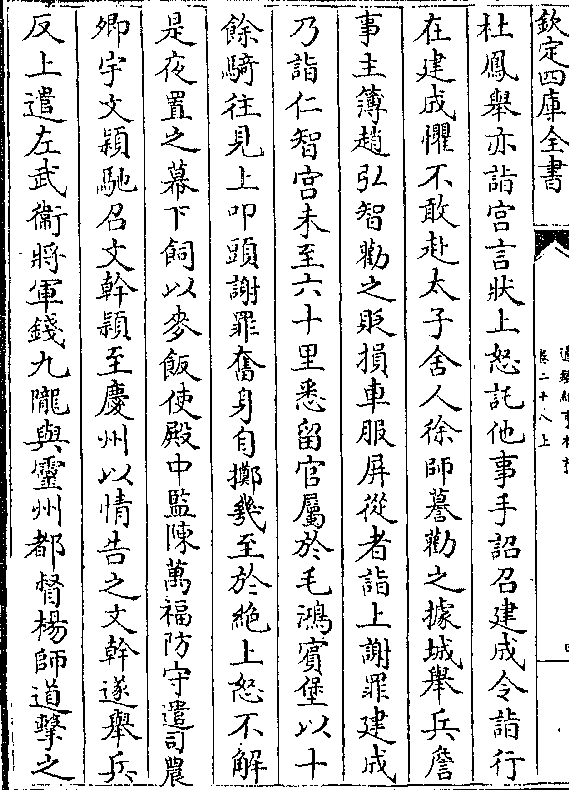 欽定四庫全書
卷二十八上
杜鳳舉亦詣宮言狀上怒託他事手詔召建成令詣行
在建成懼不敢赴太子舍人徐師謩勸之據城舉兵詹
事主簿趙弘智勸之貶損車服屏從者詣上謝罪建成
乃詣仁智宮未至六十里悉留官屬於毛鴻賓堡以十
餘騎往見上叩頭謝罪奮身自擲幾至於絶上怒不解
是夜置之幕下飼以麥飯使殿中監陳萬福防守遣司農
卿宇文穎馳召文幹穎至慶州以情告之文幹遂舉兵
反上遣左武衞將軍錢九隴與靈州都督楊師道擊之